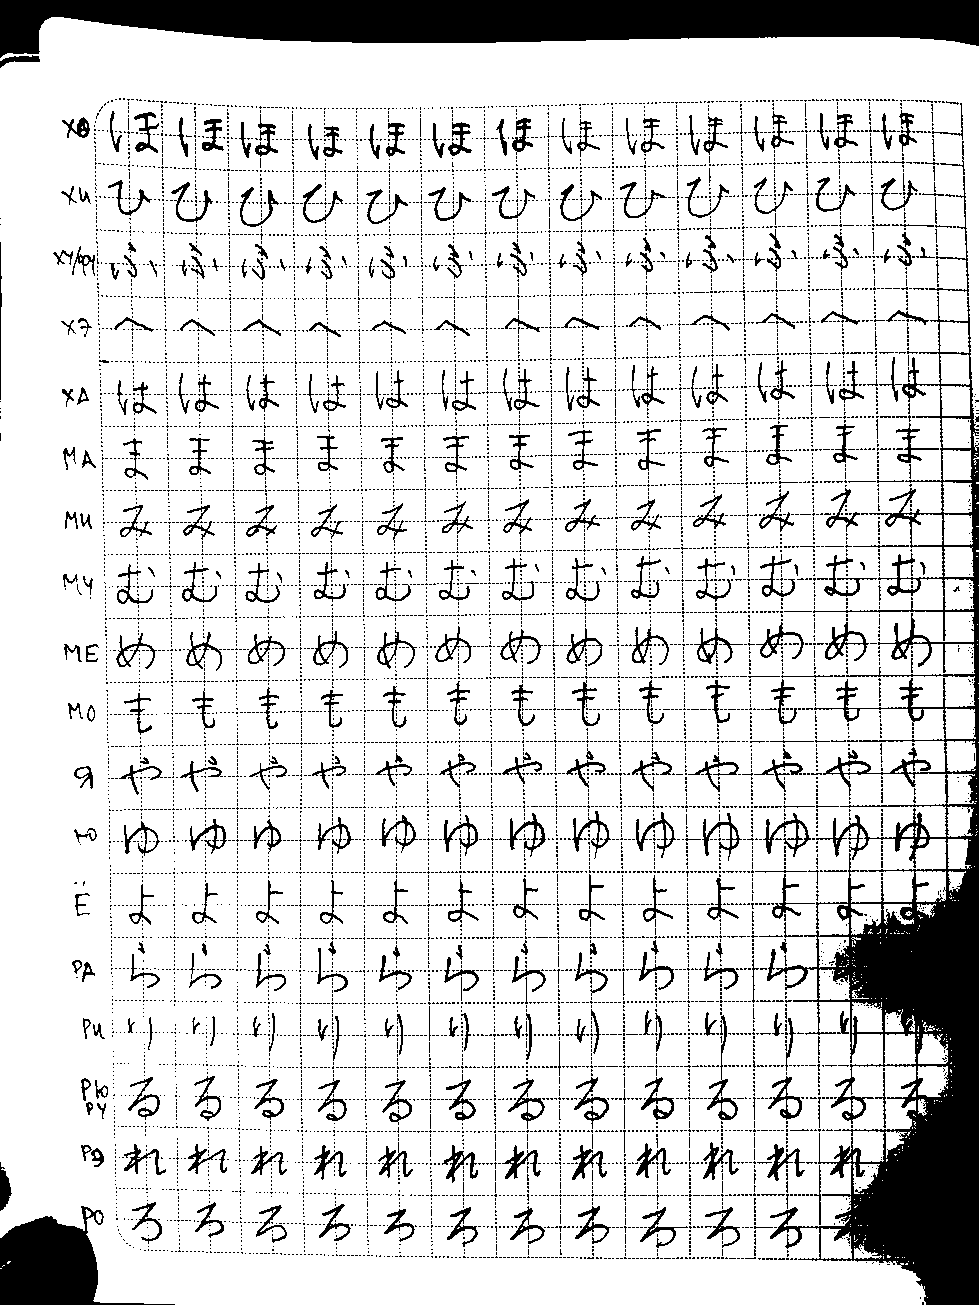 ХО ほ ほ ほ ほ ほ ほ ほ ほ ほ ほ ほ ほ ほ
ХИ ひ ひ ひ ひ ひ ひ ひ ひ ひ ひ ひ ひ ひ
ХУ/ФУ ふ ふ ふ ふ ふ ふ ふ ふ ふ ふ ふ ふ ふ
ХЭ へ へ へ へ へ へ へ へ へ へ へ へ へ
ХА は は は は は は は は は は は は は
МА ま ま ま ま ま ま ま ま ま ま ま ま ま
МИ み み み み み み み み み み み み み
МУ む む む む む む む む む む む む む
МЕ め め め め め め め め め め め め め
МО も も も も も も も も も も も も も
Я や や や や や や や や や や や や や
Ю ゆ ゆ ゆ ゆ ゆ ゆ ゆ ゆ ゆ ゆ ゆ ゆ ゆ
Ё よ よ よ よ よ よ よ よ よ よ よ よ よ
РА ら ら ら ら ら ら ら ら ら ら ら
РИ り り り り り り り り り り り り
РЮ РУ る る る る る る る る る る る る る
РЭ れ れ れ れ れ れ れ れ れ れ れ れ
РО ろ ろ ろ ろ ろ ろ ろ ろ ろ ろ ろ